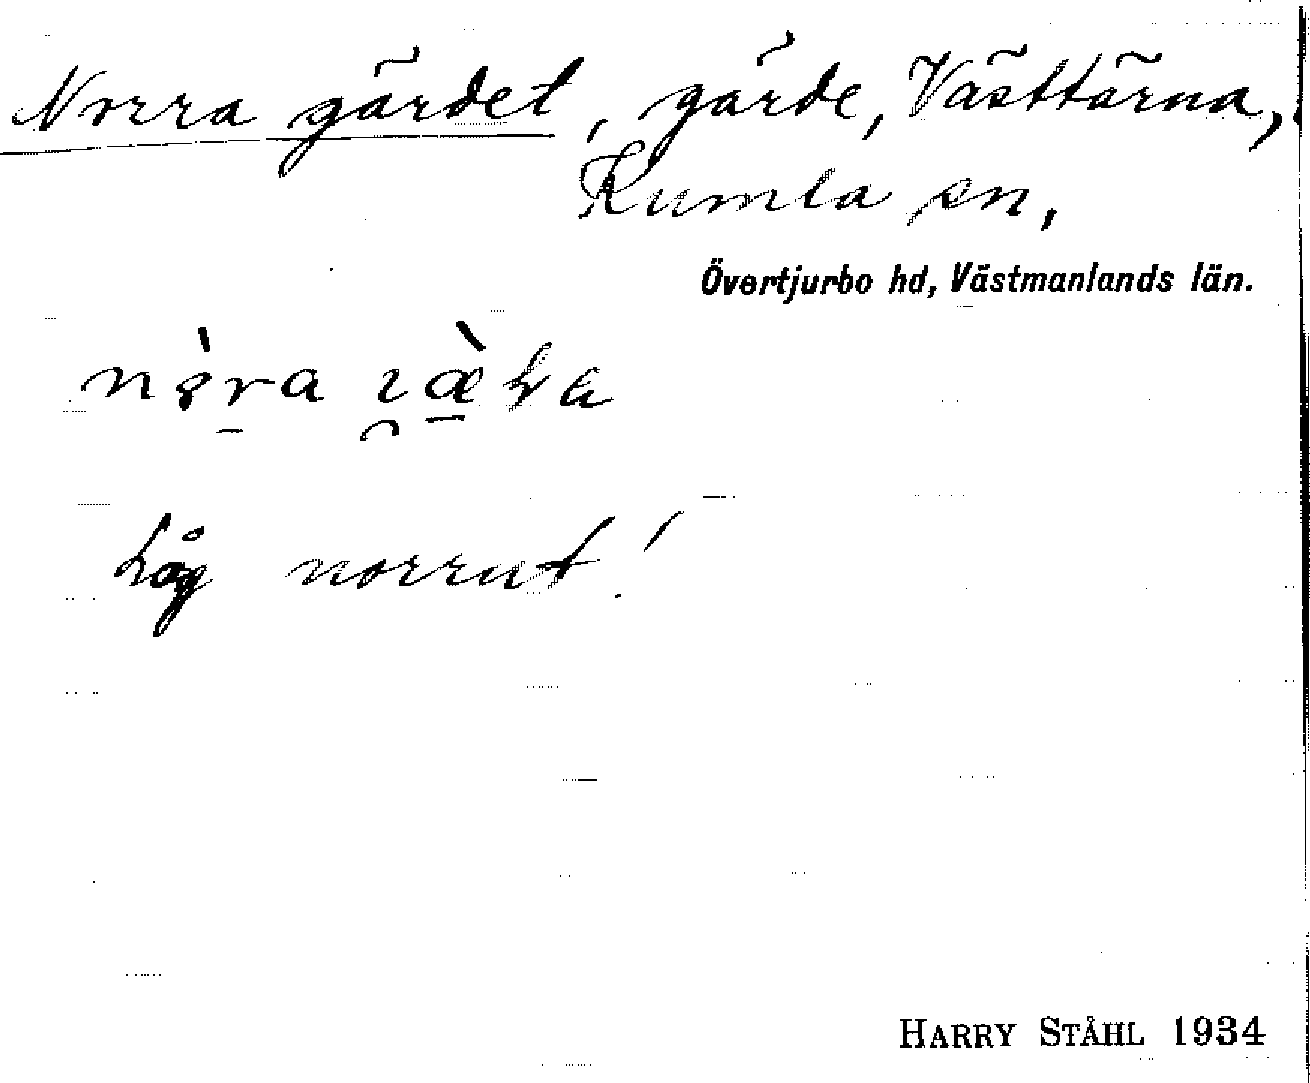 Norra gärdet, gärde, Västtärna,
Kumla sn,
Övertjurbo hd, Västmanlands län.
Låg norrut!
HARRY STÅHL 1934